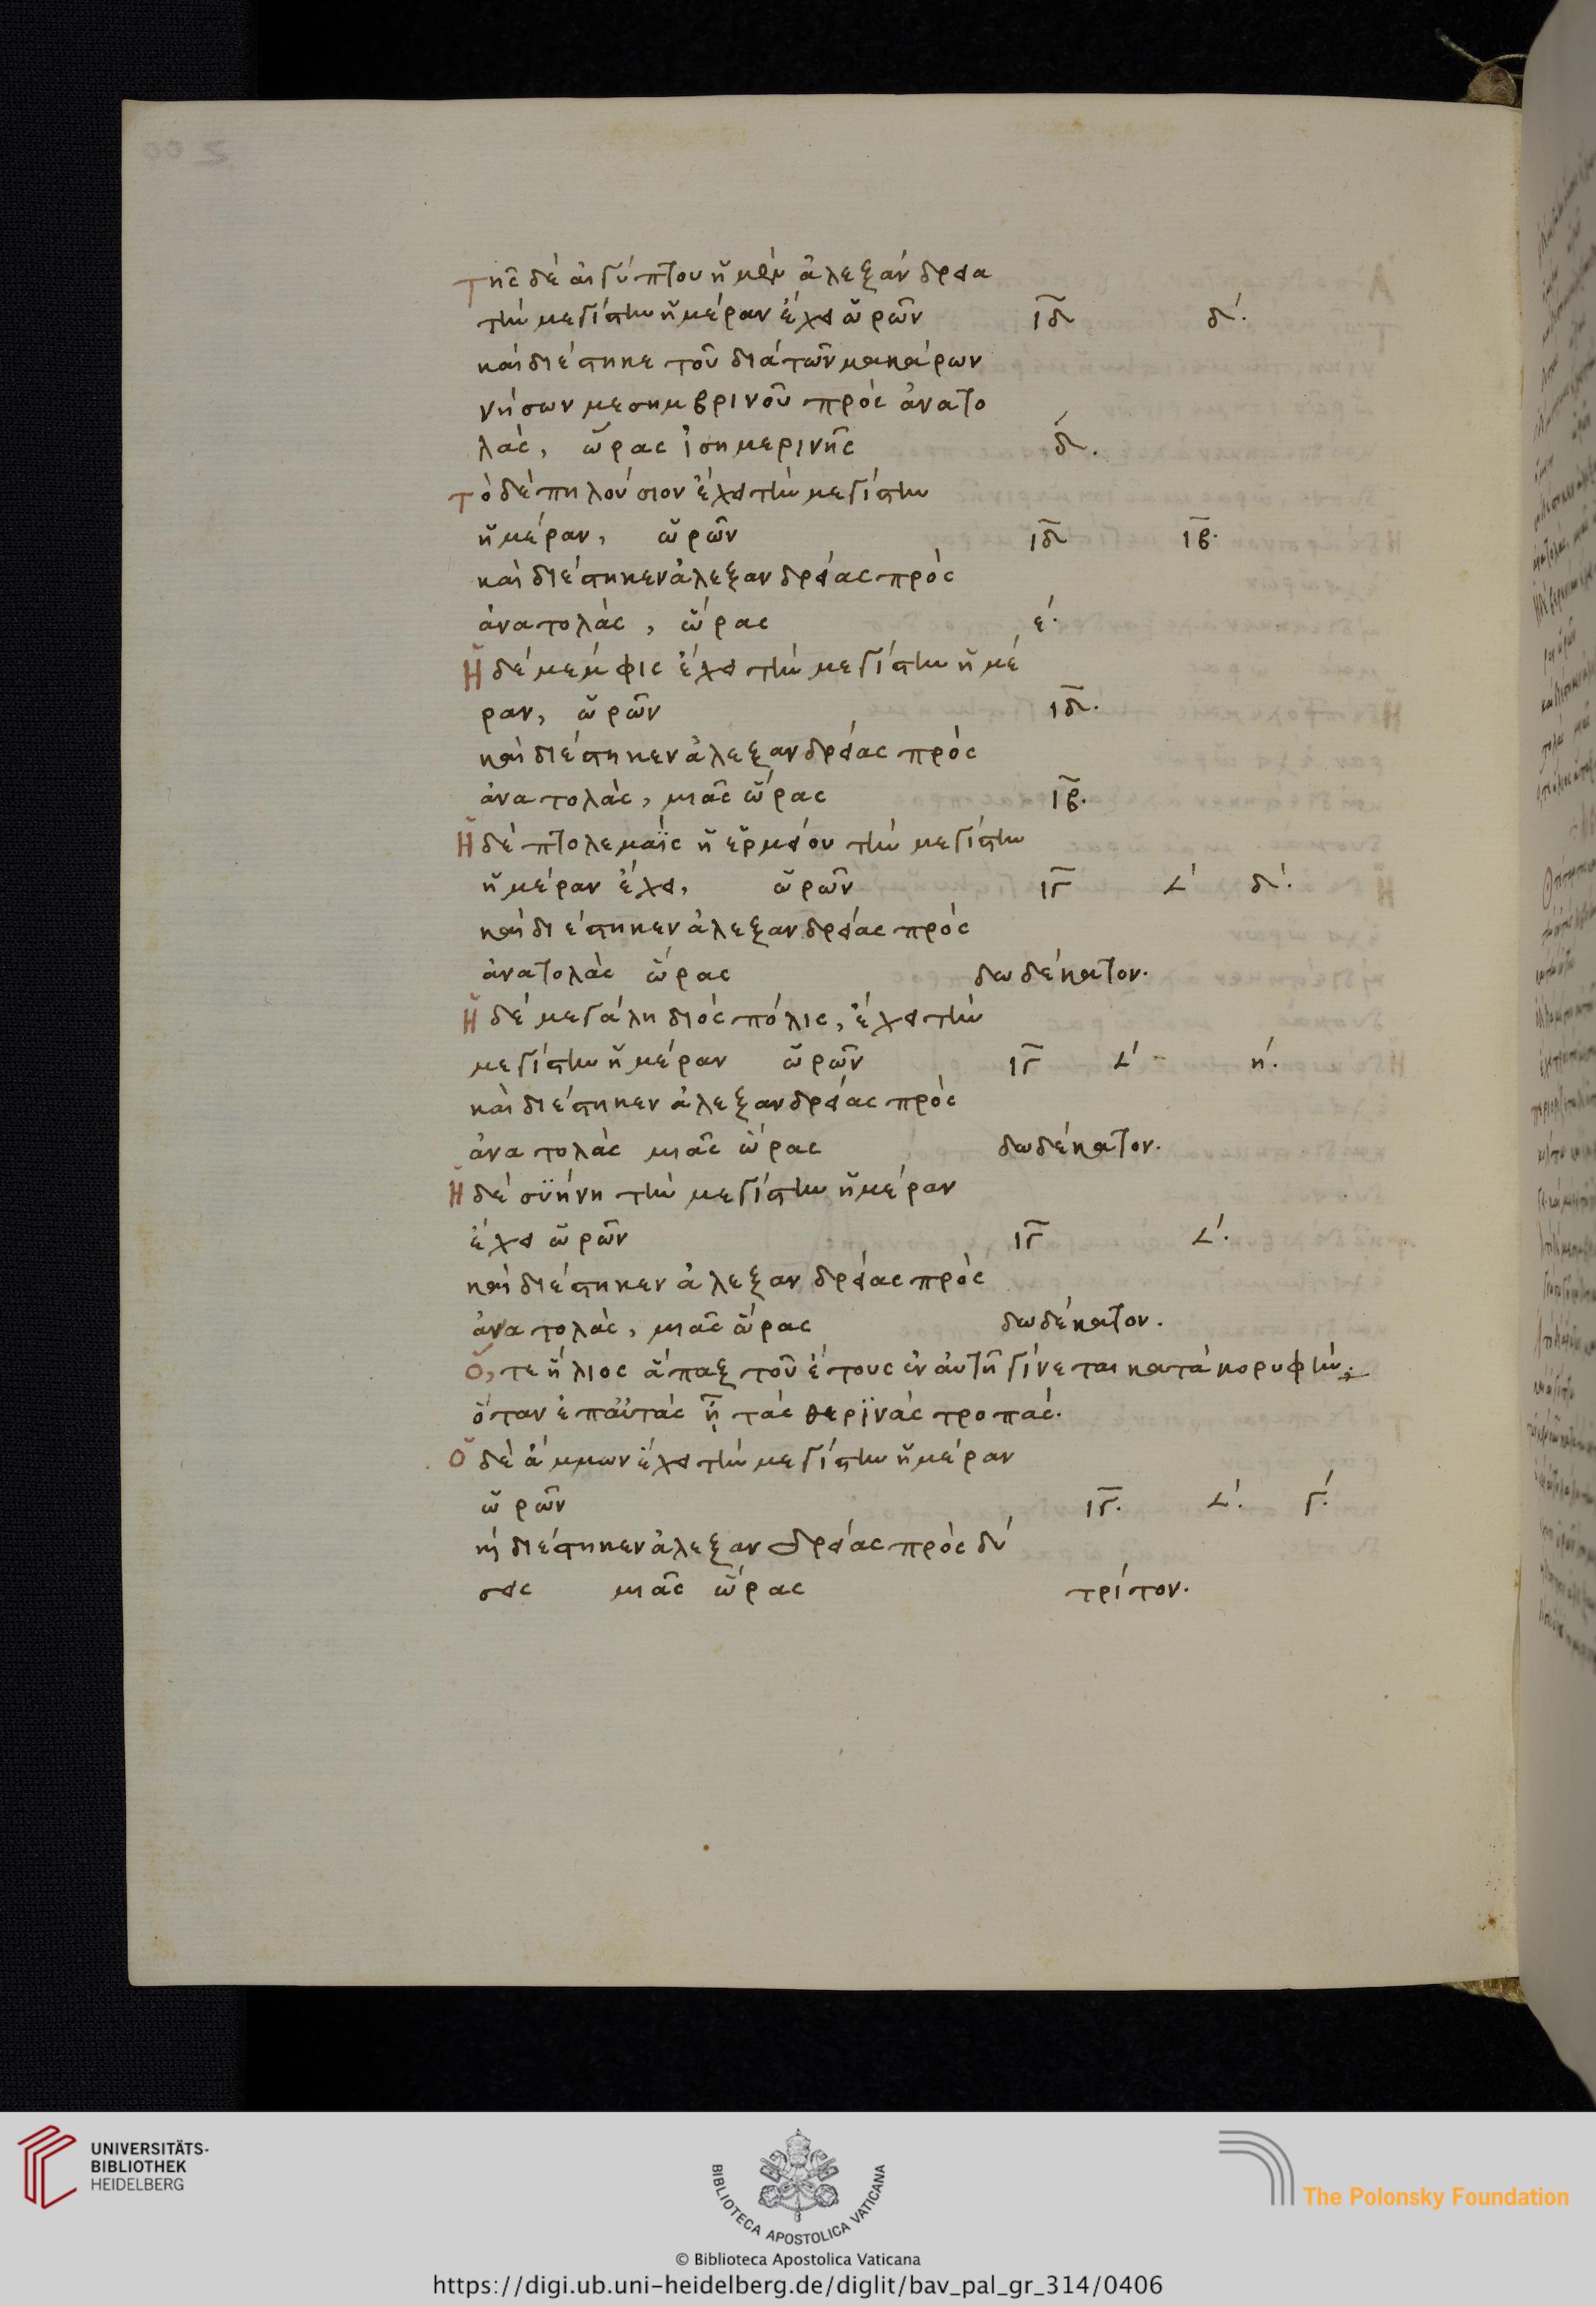 Τῆς δὲ ἀιγύπτου ἡ μὲν ἀλεξάνδρεια
τὴν μεγίστην ἡμέραν ἔχει ὡρῶν ιδ δ´.
καὶ διέστηκε τοῦ διὰ τῶν μακάρων
νήσων μεσημβρινοῦ πρὸς ἀνατο
λὰς, ὥρας ἰσημερινῆς δ.
Τὸ δὲ πηλούσιον ἔχει τὴν μεγίστην
ἡμέραν, ὡρῶν ιδ ιβ.
καὶ διέστηκεν ἀλεξανδρείας πρὸς
ἀνατολὰς, ὥρας ε´.
Ἡ δὲ μεμφις ἔχει τὴν μεγίστην ἡμέ
ραν, ὡρῶν ιδ.
καὶ διέστηκεν ἀλεξανδρείας πρὸς
ἀνατολὰς, μιᾶς ὥρας ιβ.
Ἡ δὲ πτολεμαῒς ἡ ἑρμείου τὴν μεγίστην
ἡμέραν ἔχει, ὡρῶν ιγ 𐅵´ δ´.
καὶ διέστηκεν ἀλεξανδρείας πρὸς
ἀνατολὰς ὥρας δωδέκατον.
Ἡ δὲ μεγάλη διὸς πόλις, ἔχει τὴν
μεγίστην ἡμέραν ὡρῶν ιγ 𐅵´ η´.
καὶ διέστηκεν ἀλεξανδρείας πρὸς
ἀνατολὰς μιᾶς ὥρας δωδέκατον.
Ἡ δὲ συήνη τὴν μεγίστην ἡμέραν
ἔχει ὡρῶν ιγ 𐅵´.
καὶ διέστηκεν ἀλεξανδρείας πρὸς
ἀνατολὰς, μιᾶς ὥρας δωδέκατον.
Ὅ, τε ἥλιος ἅπαξ τοῦ ἔτους ἐν ἀυτῆ γίνεται κατὰ κορυφὴν·
ὅταν ἐπ' ἀυτὰς ᾖ τὰς θερϊνὰς τροπάς.
Ὁ δὲ ἄμμων ἔχει τὴν μεγίστην ἡμέραν
ὡρῶν ιγ. 𐅵´. γ´.
καὶ διέστηκεν ἀλεξανδρείας πρὸς δύ
σεις μιᾶς ὥρας τρίτον.
UNIVERSITÄTS-
BIBLIOTHEK
HEIDELBERG
BIBLIOTECA APOSTOLICA VATICANA
The Polonsky Foundation
© Biblioteca Apostolica Vaticana
https://digi.ub.uni-heidelberg.de/diglit/bav_pal_gr_314/0406